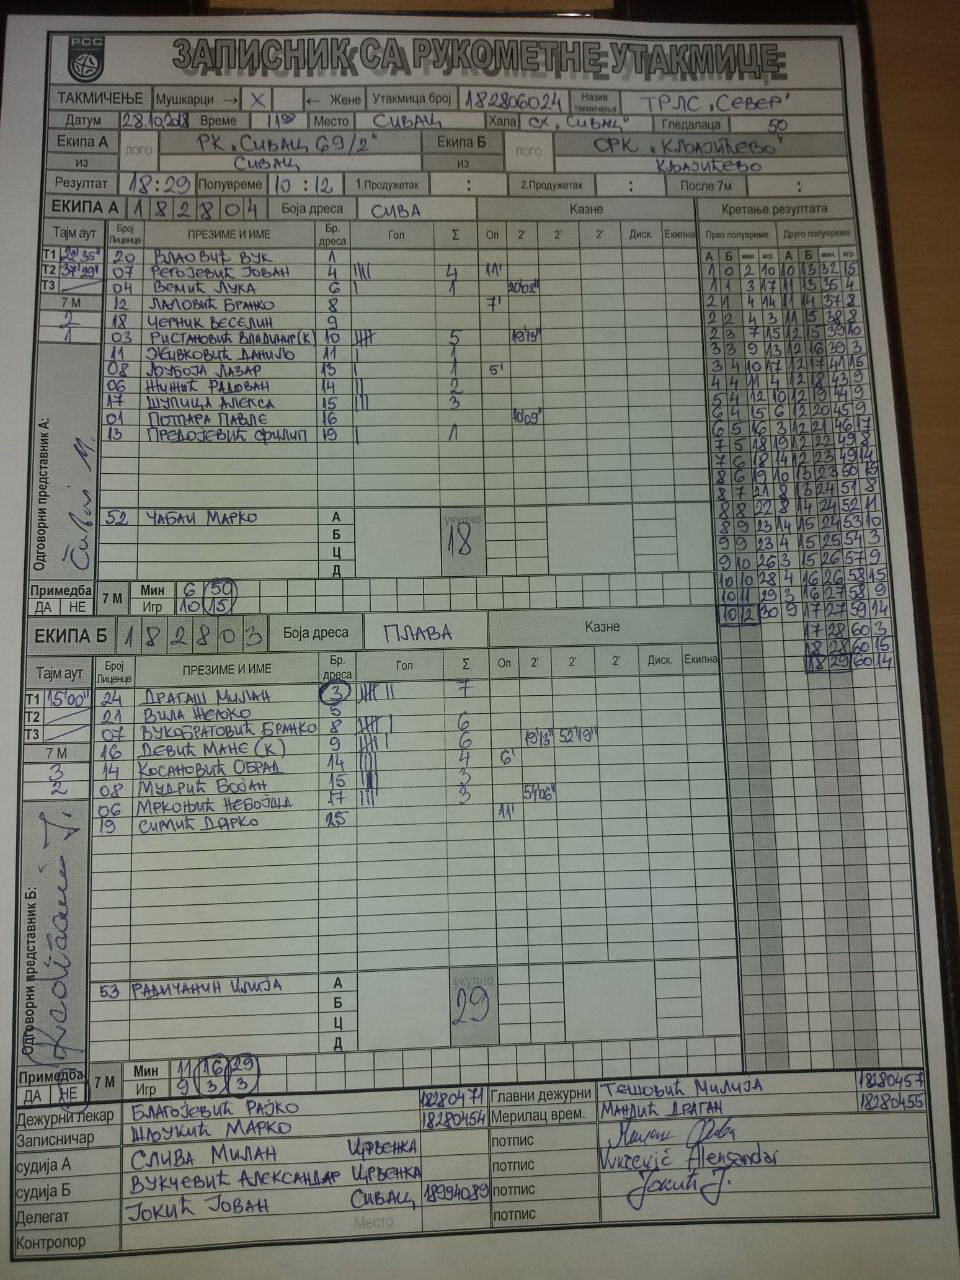 РСС
ЗАПИСНИК СА РУКОМЕТНЕ УТАКМИЦЕ
ТАКМИЧЕЊЕ Мушкарци → X ← Жене Утакмица број 182806024 Назив такмичења ТРЛС „СЕВЕР"
Датум 28.10.2018 Време 11⁰⁰ Место СИВАЦ Хала СХ „СИВАЦ" Гледалаца 50
Екипа А лого РК „СИВАЦ 69/2" Екипа Б лого ОРК „КЉАЈИЋЕВО"
из СИВАЦ из КЉАЈИЋЕВО
Резултат 18:29 Полувреме 10:12 1.Продужетак : 2.Продужетак : После 7м :
ЕКИПА А 182804 Боја дреса СИВА Казне Кретање резултата
Тајм аут Број Лиценце ПРЕЗИМЕ И ИМЕ Бр. дреса Гол Σ Оп 2' 2' 2' Диск. Екипна Прво полувреме Друго полувреме
А Б мин. игр. А Б мин. игр.
Т1 20 ВЛАОВИЋ ВУК 1
Т2 37'29" 07 РЕГОЈЕВИЋ ЈОВАН 4 IIII 4 11'
Т3 04 ВЕМИЋ ЛУКА 6 I 1 20'02"
7 М 12 ЛАЛОВИЋ БРАНКО 8 7'
2 18 ЧЕРНИК ВЕСЕЛИН 9
1 03 РИСТАНОВИЋ ВЛАДИМИР(К) 10 5 19'13"
11 ЖИВКОВИЋ ДАНИЛО 11 I 1
08 ЉУБОЈА ЛАЗАР 13 I 1 5'
06 ЖИЖИЋ РАДОВАН 14 II 2
17 ШУПИЦА АЛЕКСА 15 III 3
01 ПОТПАРА ПАВЛЕ 16 10'09"
13 ПРЕДОЈЕВИЋ ФИЛИП 19 I 1
1 0 2 10 10 13 32 15
1 1 3 17 11 13 35 4
2 1 4 14 11 14 37 8
2 2 4 3 11 15 38 8
2 3 7 15 12 15 39 10
3 3 9 13 12 16 39 3
3 4 10 17 12 17 41 15
4 4 11 4 12 18 43 9
5 4 12 10 12 19 44 9
6 4 15 6 12 20 45 9
6 5 16 3 12 21 46 17
7 5 18 19 12 22 49 8
7 6 18 14 12 23 49 14
8 6 19 10 13 23 50 15
8 7 21 8 13 24 51 8
8 8 22 8 14 24 52 11
8 9 23 14 15 24 53 10
9 9 23 4 15 25 54 3
9 10 26 3 15 26 57 9
10 10 28 4 16 26 58 15
10 11 29 3 16 27 58 9
10 12 30 9 17 27 59 14
17 28 60 3
18 28 60 15
18 29 60 14
Одговорни представник А:
52 ЧАБАИ МАРКО А укупно 18
Б
Ц
Д
Примедба 7 М Мин 6 50
ДА НЕ Игр 10 15
ЕКИПА Б 182803 Боја дреса ПЛАВА Казне
Тајм аут Број Лиценце ПРЕЗИМЕ И ИМЕ Бр. дреса Гол Σ Оп 2' 2' 2' Диск. Екипна
Т1 15'00" 24 ДРАГАШ МИЛАН 3 7
Т2 21 ВИЛА ЖЕЉКО 5
Т3 07 ВУКОБРАТОВИЋ БРАНКО 8 6
7 М 16 ДЕВИЋ МАНЕ (К) 9 6 19'13" 52'19"
3 14 КОСАНОВИЋ ОБРАД 14 IIII 4 6'
2 08 МУДРИЋ БОЈАН 15 3
06 МРКОЊИЋ НЕБОЈША 17 III 3 51'06"
19 СИМИЋ ДАРКО 25 11'
Одговорни представник Б:
53 РАДИЧАНИН ИЛИЈА А укупно 29
Б
Ц
Д
Примедба 7 М Мин 11 16 29
ДА НЕ Игр 9 3 3
Дежурни лекар БЛАГОЈЕВИЋ РАЈКО 18280471 Главни дежурни ТЕШОВИЋ МИЛИЈА 18280457
Записничар ШЉУКИЋ МАРКО 18280454 Мерилац врем. МАНДИЋ ДРАГАН 18280455
судија А СЛИВА МИЛАН ЦРВЕНКА потпис
судија Б ВУКЧЕВИЋ АЛЕКСАНДАР ЦРВЕНКА потпис Vukčević Aleksandar
Делегат ЈОКИЋ ЈОВАН СИВАЦ 18994089 потпис Јокић Ј.
Контролор Место потпис